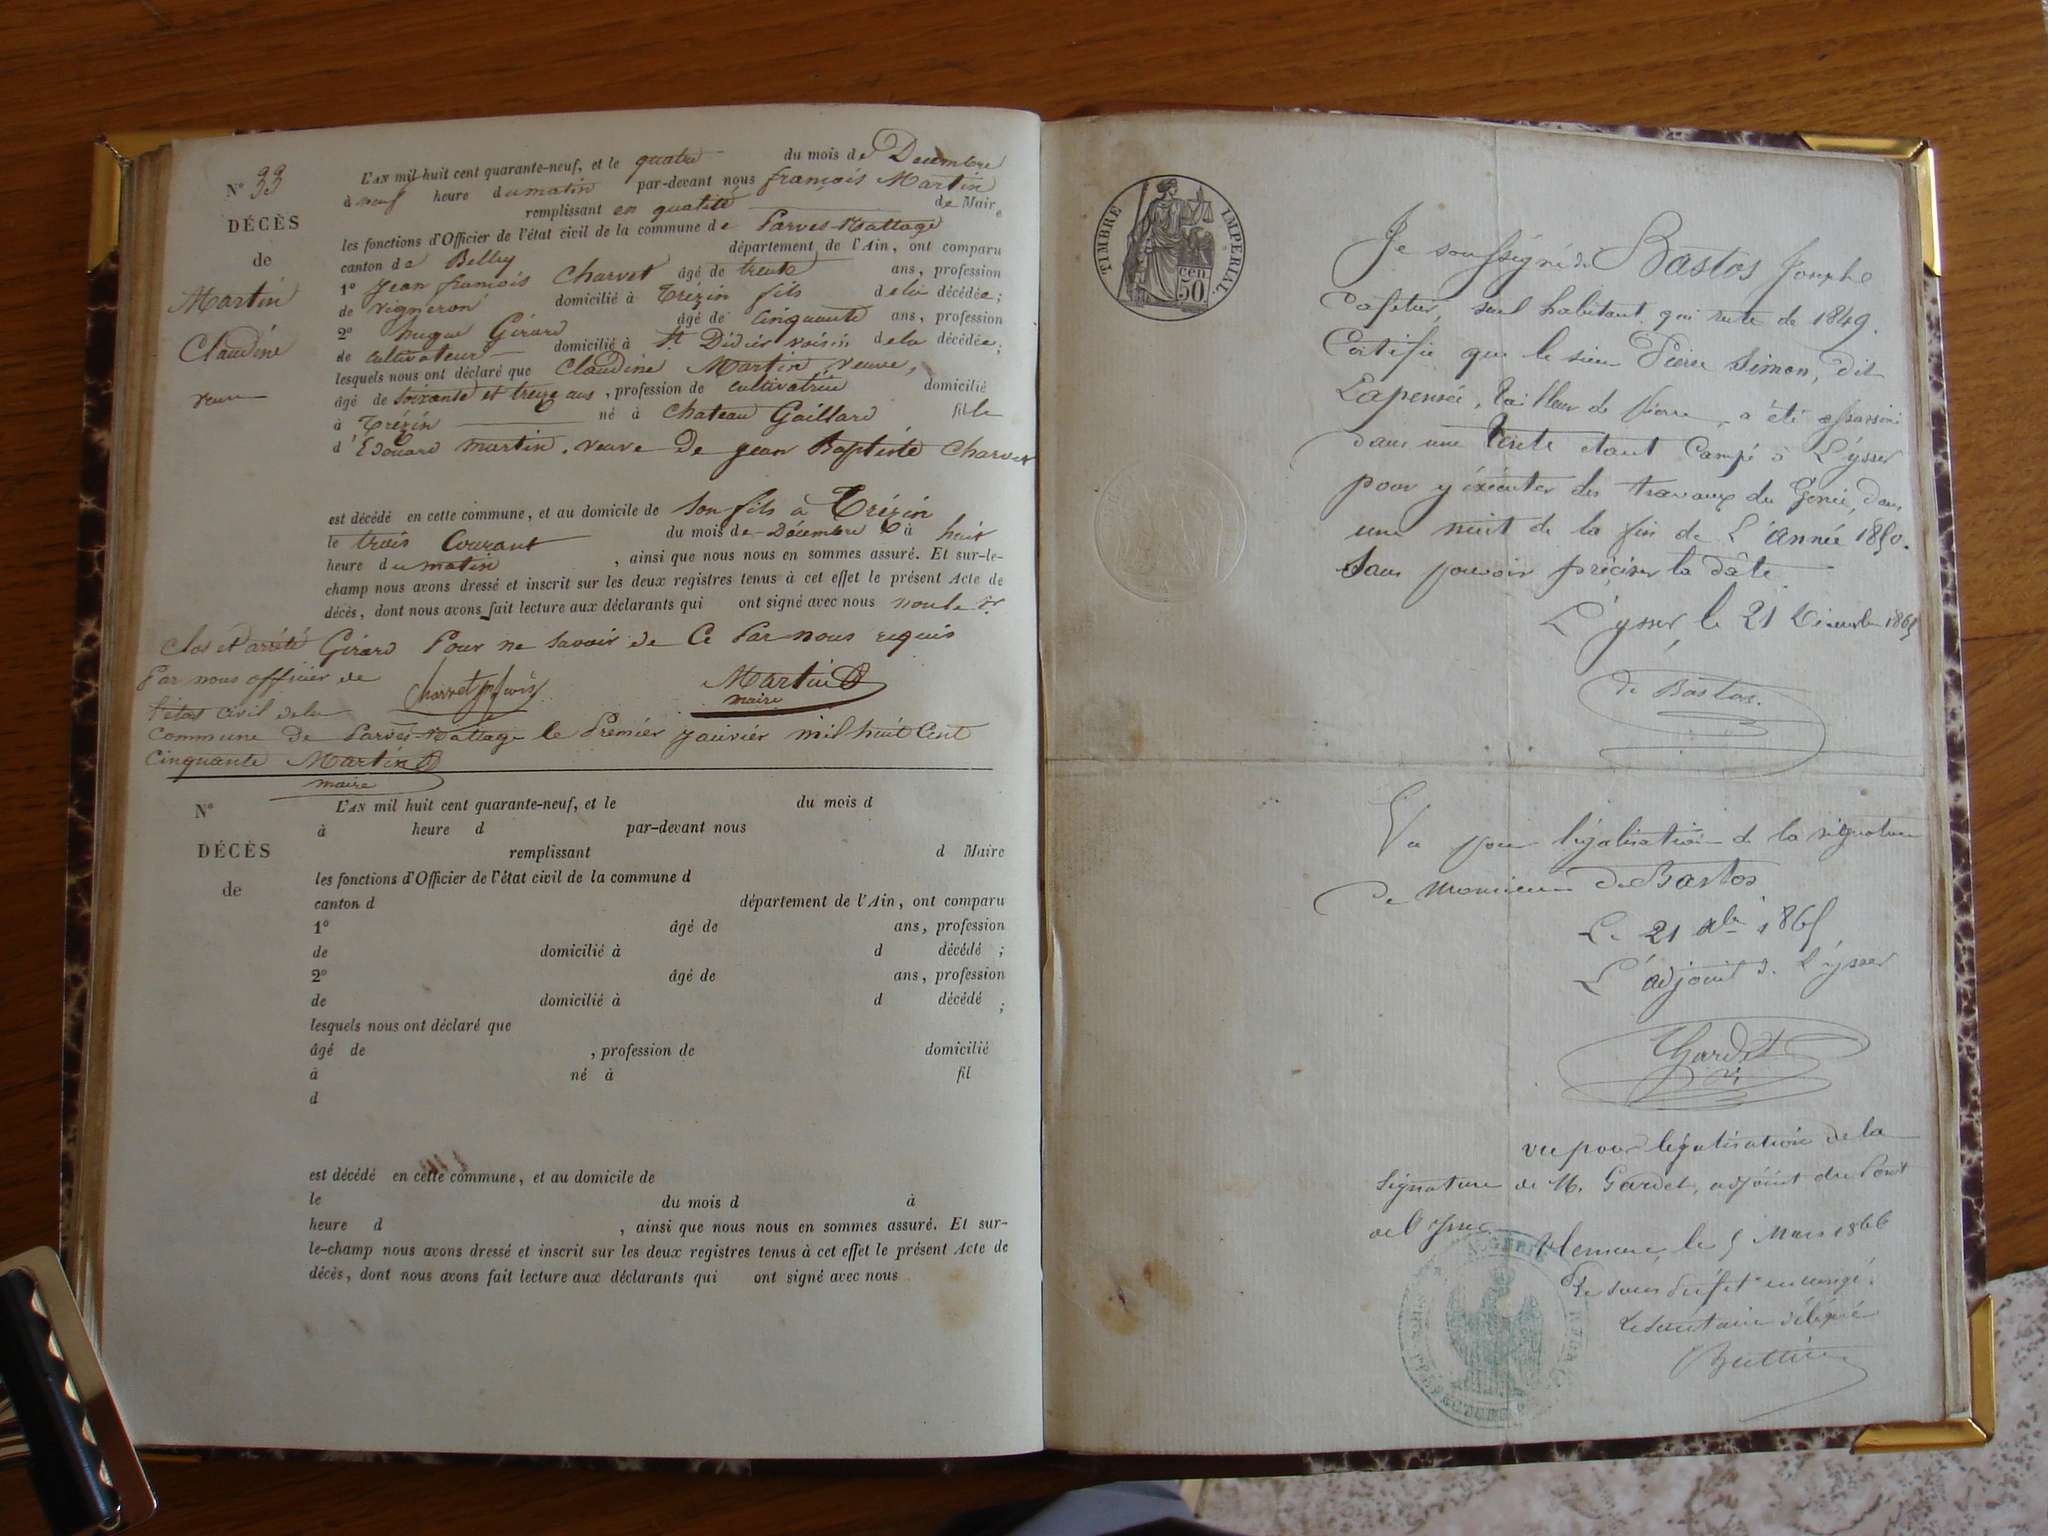 N° 33
DÉCÈS
de
Martin
Claudine
veuve
L'AN mil-huit cent quarante-neuf, et le quatre du mois de Decembre
à neuf heure du matin par-devant nous françois Martin
remplissant en qualité de Maire
les fonctions d'Officier de l'état civil de la commune de Parves-Nattage
canton de Belley département de l'Ain, ont comparu
1° Jean françois Charvet âgé de trente ans, profession
de vigneron domicilié à Trézin fils de la décédée;
2° hugue Girard âgé de cinquante ans, profession
de cultivateur domicilié à St Didier voisin de la décédée;
lesquels nous ont déclaré que Claudine Martin veuve,
âgé de soixante et treize ans, profession de cultivatrice domicilié
à Trézin né à Chateau Gaillard fille
d'Edouard martin. veuve De jean Baptiste Charvet
est décédé en cette commune, et au domicile de son fils à Trézin
le trois Courant du mois de Décembre à huit
heure du matin, ainsi que nous nous en sommes assuré. Et sur-le-
champ nous avons dressé et inscrit sur les deux registres tenus à cet effet le présent Acte de
décès, dont nous avons fait lecture aux déclarants qui ont signé avec nous non le Sr
Clos et arrété Girard Pour ne savoir de Ce Par nous requis
Par nous officier de
Charvet Martin
maire
l'état civil de la
Commune De Parves-Nattage le Premiér janviér mil huit Cent
Cinquante Martin
maire
N°
DÉCÈS
de
L'AN mil huit cent quarante-neuf, et le du mois d
à heure d par-devant nous
remplissant d Maire
les fonctions d'Officier de l'état civil de la commune d
canton d département de l'Ain, ont comparu
1° âgé de ans, profession
de domicilié à d décédé ;
2° âgé de ans, profession
de domicilié à d décédé ;
lesquels nous ont déclaré que
âgé de , profession de domicilié
à né à fil
d
est décédé en cette commune, et au domicile de
le du mois d à
heure d , ainsi que nous nous en sommes assuré. Et sur-
le-champ nous avons dressé et inscrit sur les deux registres tenus à cet effet le présent Acte de
décès, dont nous avons fait lecture aux déclarants qui ont signé avec nous
TIMBRE IMPERIAL
50 cen
Je soussigné de Bastos Josephe
Cafetier, seul habitant qui reste de 1849.
Certifie que le sieur Pierre Simon, dit
Lapensée, tailleur de pierre, a été assassiné
dans une tente etant Campé à L'ysser
pour y éxécuter des travaux du Genie, dans
une nuit de la fin de L'année 1850.
Sans pouvoir préciser la dâte
L'ysser, le 21 Decembre 1865
de Bastos.
Vu pour légalisation de la signature
de Monsieur De Bastos
Le 21 Xbre 1865
L'adjoint de L'ysser
Gardet
vu pour légalisation de la
Signature de M. Gardet, adjoint du Pont
de l'Isser
Tlemcen, le 5 Mars 1866
Le sous préfet en congé.
Le Secretaire délégué